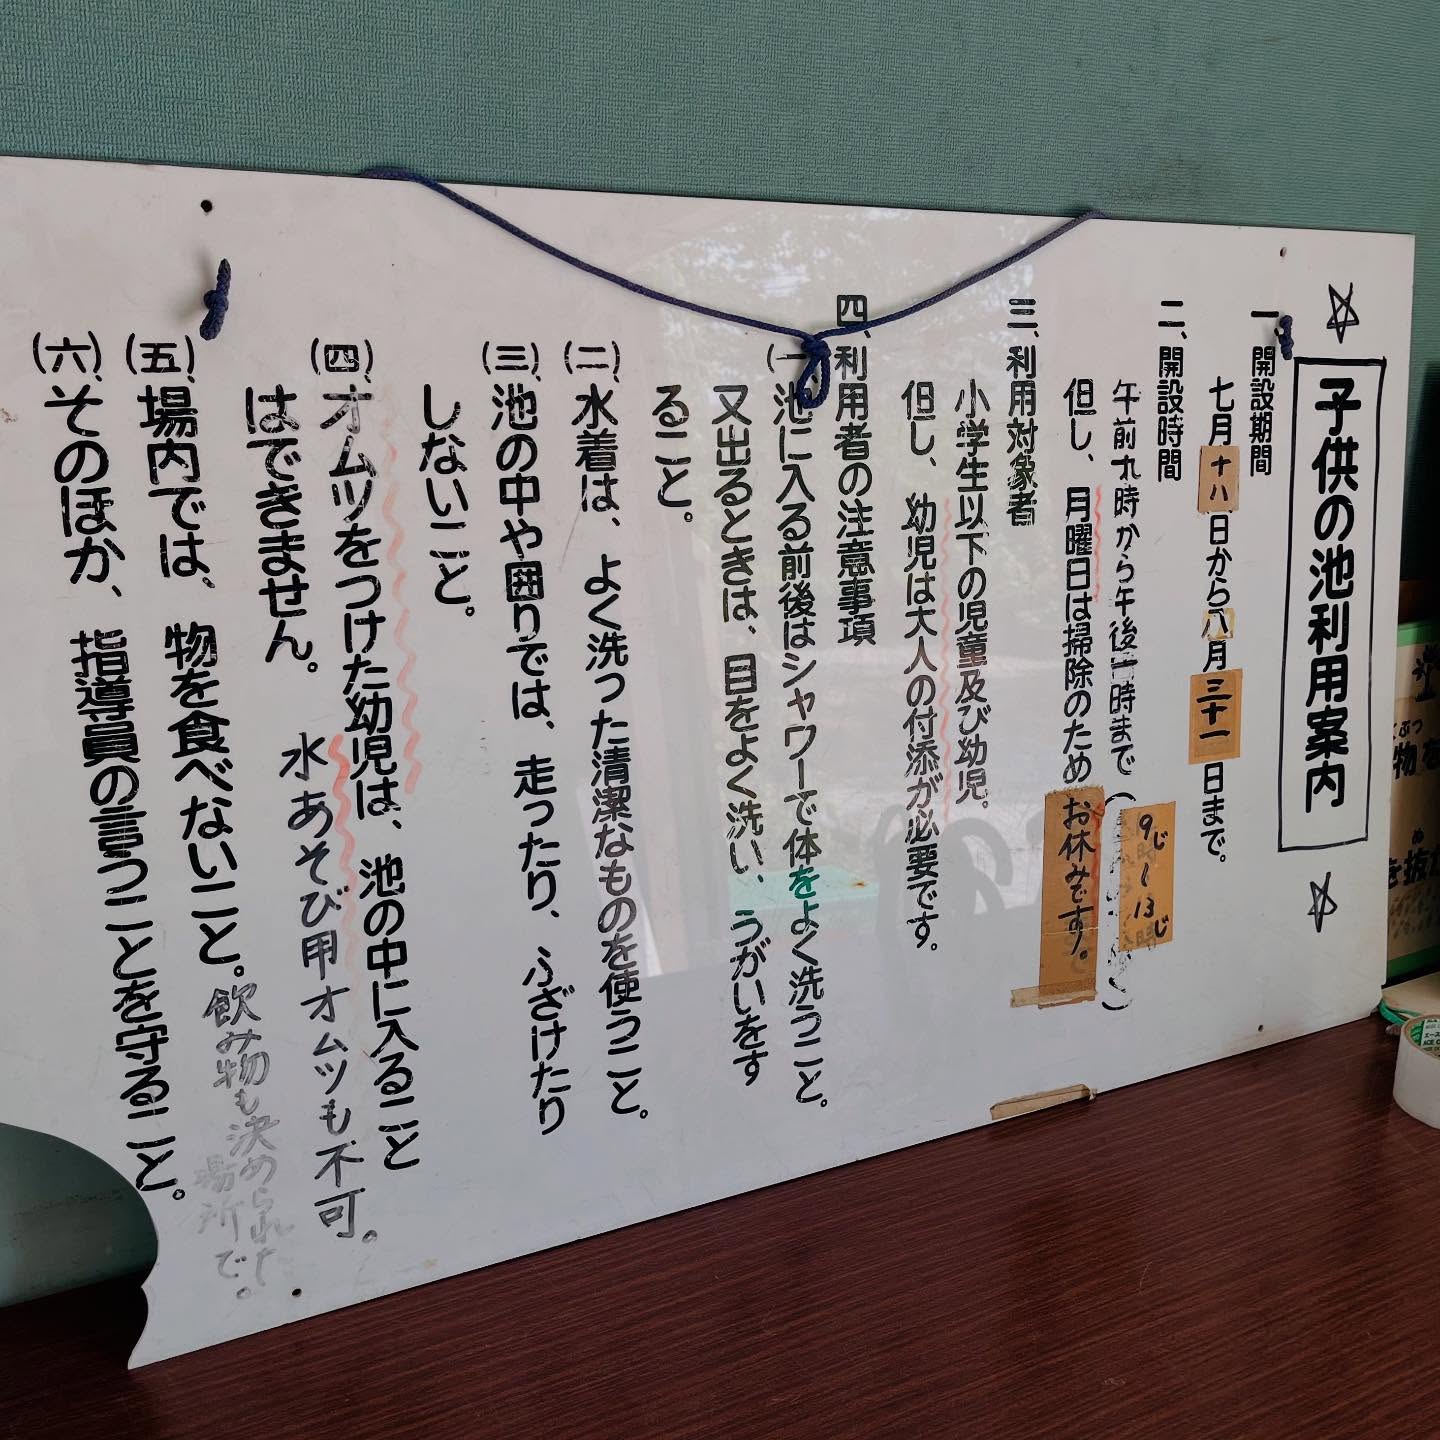 子供の池利用案内
一、開設期間
七月十八日から八月三十一日まで。
二、開設時間
午前九時から午後一時まで
9じ〜13じ
但し、月曜日は掃除のためお休みです。
三、利用対象者
小学生以下の児童及び幼児。
但し、幼児は大人の付添が必要です。
四、利用者の注意事項
(一)、池に入る前後はシャワーで体をよく洗うこと。
又出るときは、目をよく洗い、うがいをす
ること。
(二)、水着は、よく洗った清潔なものを使うこと。
(三)、池の中や囲りでは、走ったり、ふざけたり
しないこと。
(四)、オムツをつけた幼児は、池の中に入ること
はできません。水あそび用オムツも不可。
(五)、場内では、物を食べないこと。飲み物も決められた
場所で。
(六)、そのほか、指導員の言うことを守ること。